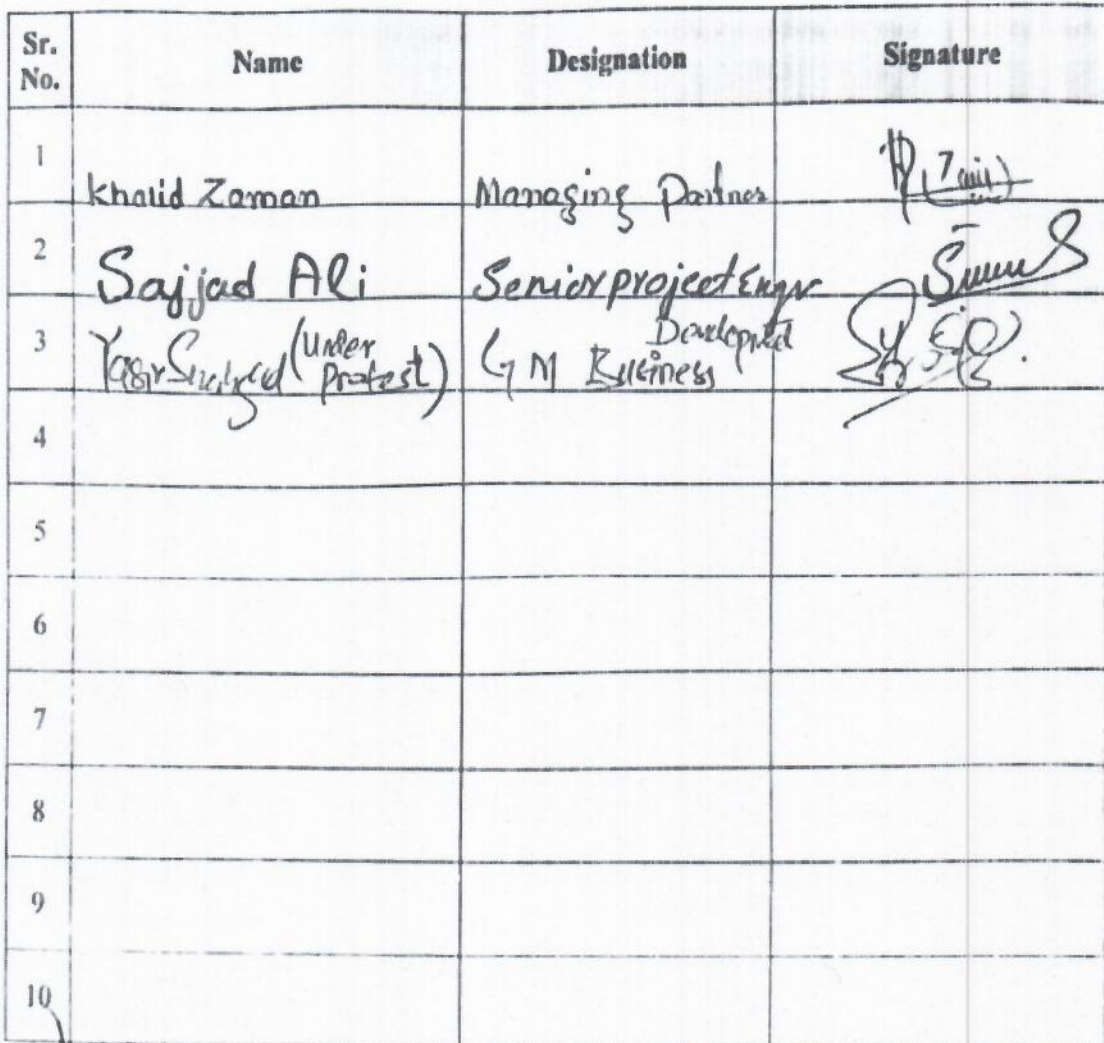 Sr. No. Name Designation Signature
1 Khalid Zaman Managing Partner
2 Sajjad Ali Senior project Engr
3 Yasir (Under protest) GM Business Development
4
5
6
7
8
9
10